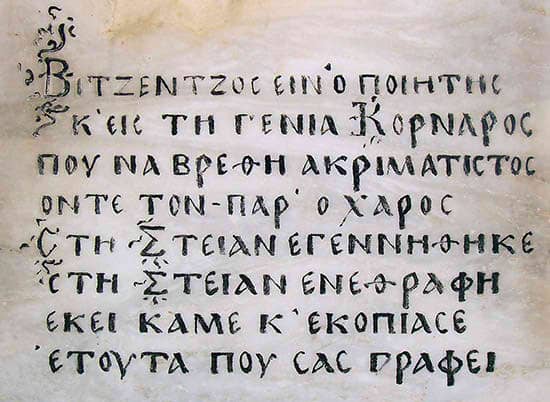 ΒΙΤΖΕΝΤΖΟΣ ΕΙΝ' Ο ΠΟΙΗΤΗΣ
Κ' ΕΙΣ ΤΗ ΓΕΝΙΑ ΚΟΡΝΑΡΟΣ
ΠΟΥ ΝΑ ΒΡΕΘΗ ΑΚΡΙΜΑΤΙΣΤΟΣ
ΟΝΤΕ ΤΟΝ-ΠΑΡ' Ο ΧΑΡΟΣ
ΣΤΗ ΣΤΕΙΑΝ ΕΓΕΝΝΗΘΗΚΕ
ΣΤΗ ΣΤΕΙΑΝ ΕΝΕΘΡΑΦΗ
ΕΚΕΙ ΚΑΜΕ Κ' ΕΚΟΠΙΑΣΕ
ΕΤΟΥΤΑ ΠΟΥ ΣΑΣ ΓΡΑΦΕΙ